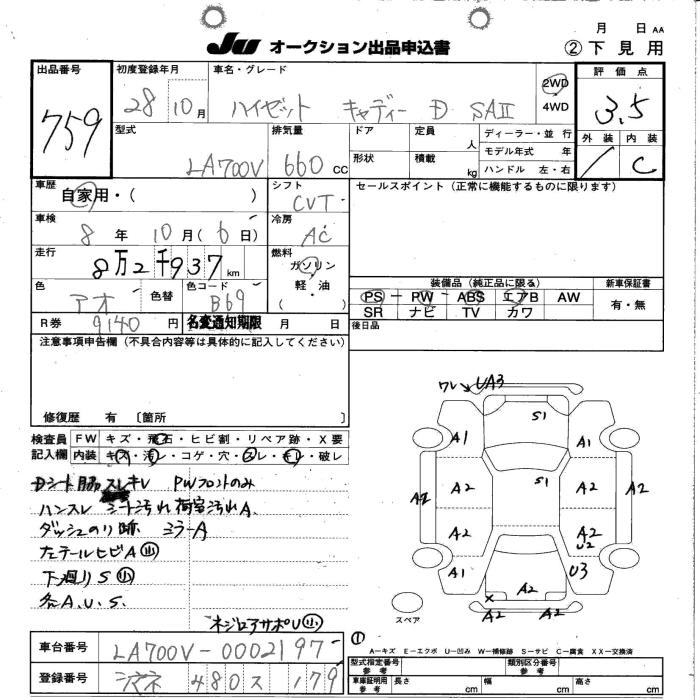 月 日 AA
JU オークション出品申込書 ②下見用
出品番号 759
初度登録年月 28 10月
車名・グレード ハイゼット キャディー D SAⅡ
2WD 4WD
評価点 3.5
外装 / 内装 C
型式 LA700V
排気量 660 CC
ドア 定員 人
形状 積載 kg
ディーラー・並行
モデル年式 年
ハンドル 左・右
車歴 自家用・( )
シフト CVT
セールスポイント(正常に機能するものに限ります)
車検 8年 10月(6日)
冷房 AC
走行 8万2千937km
燃料 ガソリン 軽油・( )
色 アオ 色替
色コード B69
装備品(純正品に限る) 新車保証書
PS PW ABS エアB AW 有・無
SR ナビ TV カワ
R券 9140円 名変通知期限 月 日
後日品
注意事項申告欄(不具合内容等は具体的に記入してください)
修復歴 有 〔箇所 〕
検査員記入欄
FW キズ・飛石・ヒビ割・リペア跡・X要
内装 キズ・汚レ・コゲ・穴・スレ・キレ・破レ
Dシート脇スレキレ PWフロントのみ
ハンスレ シート汚れ 荷室汚れA.
ダッシュのり跡 ミラーA
左テールヒビA小
下廻りS小
各A.U.S.
ネジロアサポU小
ワレ UA3
S1
A1 A1
S1
A2 A2 A2 A2
A2 A2
U2
A1 U3
A2
X
A2 A2
スペア
①
A−キズ E−エクボ U−凹み W−補修跡 S−サビ C−腐食 XX−交換済
車台番号 LA700V-0002197
登録番号 シマネ 480 ス 179
型式指定番号 参考 類別区分番号 参考
車庫証明用 参考 長さ cm 幅 cm 高さ cm